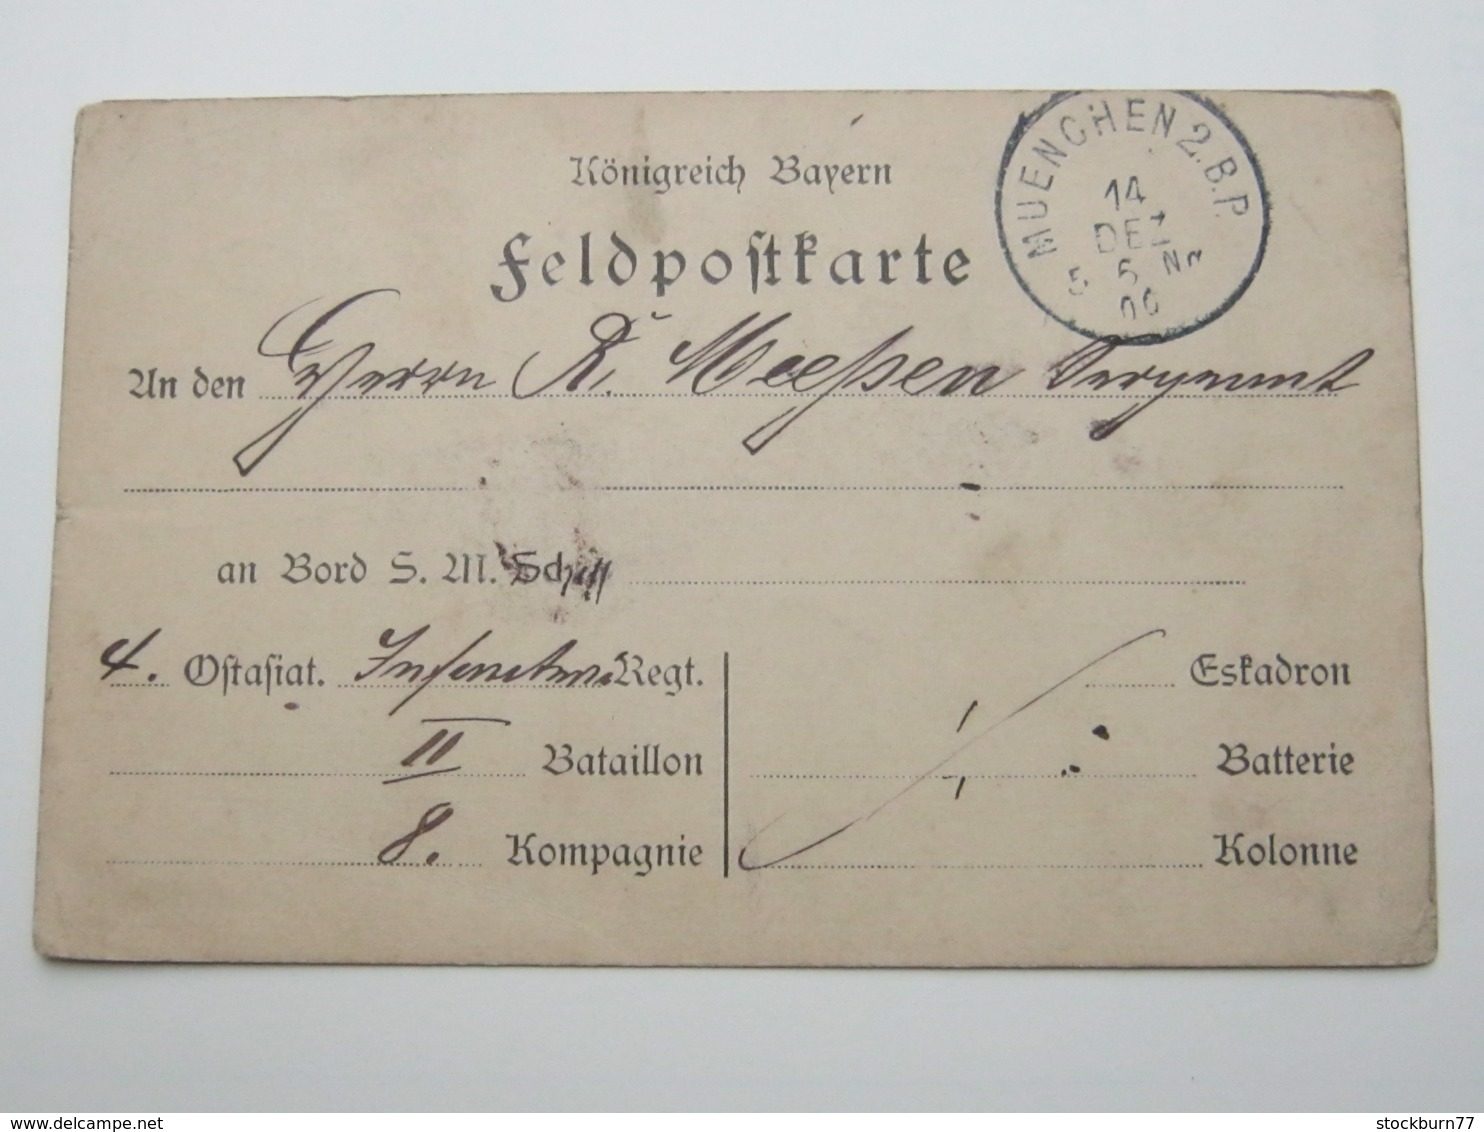 Königreich Bayern
MUENCHEN 2.B.P.
14
DEZ
5 6 Nm
00
Feldpostkarte
An den Herrn R. Meeßen Sergeant
an Bord S. M. Schiff
4. Ostasiat. Infanterie Regt.
Eskadron
II Bataillon
Batterie
8. Kompagnie
Kolonne
stockburn77